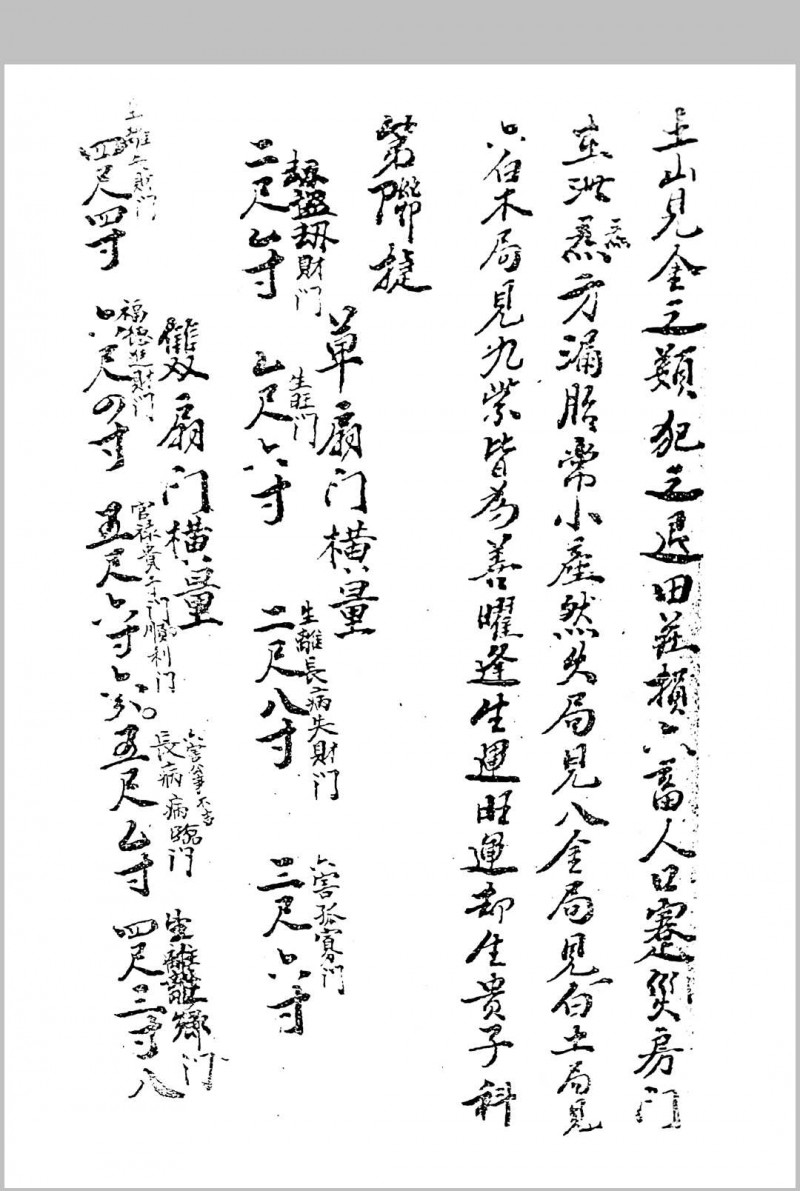 土山見金之類犯之退田莊損六畜人口蹇災房門
在洩氣方漏胎常小產然火局見八金局見白土局見
六白木局見九紫皆為善曜逢生運旺運却生貴子科
第聯捷
單扇门橫量
劫盜劫財门
二尺乙寸
生旺门
乙尺六寸
生離長病失財门
二尺八寸
六害孤寡门
三尺六寸
雙扇门橫量
生離失財门
四尺四寸
福德進財门
六尺四寸
官祿貴子门順利门
五尺六寸六分
六害 不吉
長病病臨门
五尺乙寸
生離離鄉门
四尺三寸八